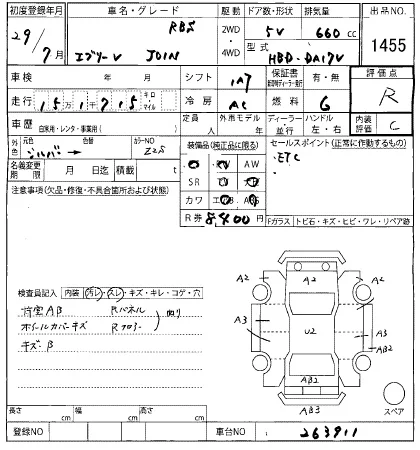 初度登録年月 車名・グレード 駆動 ドア数・形状 排気量 出品NO.
29年 7月 エブリーV RBS JOIN 2WD・4WD 5V 660cc 1455
型式 HBD-DA17V
車検 年 月 シフト IA7 保証書 有・無 評価点
走行 15万1千715 キロ マイル 冷房 AC 燃料 G R
車歴 自家用・レンタ・事業用( ) 定員 人 外市モデル 年 ディーラー・並行 ハンドル 左・右 内装評価 C
外色 元色 シルバー 色替 カラーNO Z2S 装備品(純正品に限る) セールスポイント(正常に作動するもの)
名義変更期限 月 日迄 積載 t AW ・ETC
注意事項(欠品・修復・不具合箇所および状態) SR
カワ
R券 8,400円 Fガラス トビ石・キズ・ヒビ・ワレ・リペア跡
検査員記入 内装 汚レ・スレ・キズ・キレ・コゲ・穴
荷室AB Rパネル
ホイールカバーキズ Rフロアー
キズ・B
A2 A2 A2
A3 U2 A3
AB2
AB2
AB3 スペア
長さ cm 幅 cm 高さ cm
登録NO 車台NO 263911